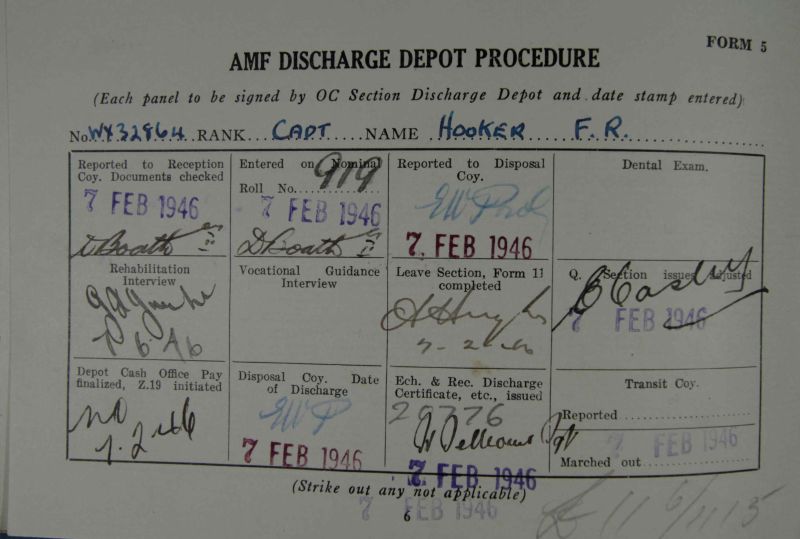 FORM 5
AMF DISCHARGE DEPOT PROCEDURE
(Each panel to be signed by OC Section Discharge Depot and date stamp entered)
No. WX32864 RANK CAPT NAME HOOKER F. R.
Reported to Reception
Coy. Documents checked
7 FEB 1946
Entered on Nominal
Roll No. 919
7 FEB 1946
Reported to Disposal
Coy.
7. FEB 1946
Dental Exam.
Rehabilitation
Interview
Vocational Guidance
Interview
Leave Section, Form 11
completed
Q. Section issues adjusted
7 FEB 1946
Depot Cash Office Pay
finalized, Z.19 initiated
7.2.46
Disposal Coy. Date
of Discharge
7 FEB 1946
Ech. & Rec. Discharge
Certificate, etc., issued
7. FEB 1946
Transit Coy.
Reported
7 FEB 1946
Marched out
(Strike out any not applicable)
7 FEB 1946
6